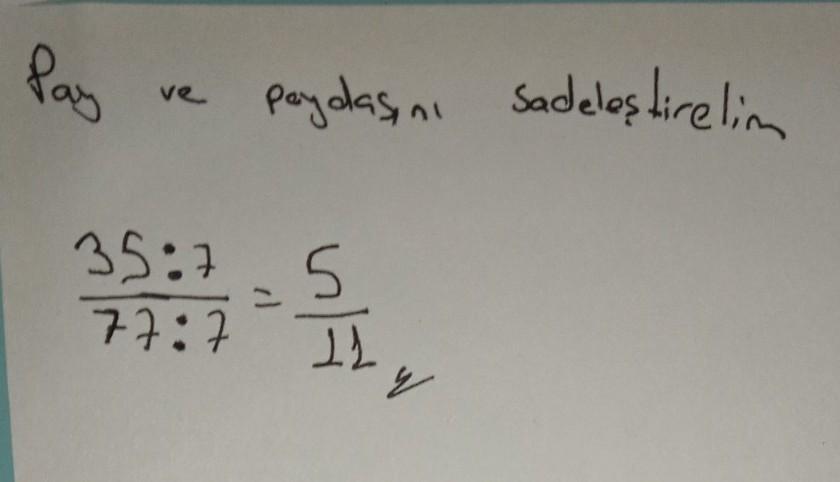 Pay ve paydasını sadeleştirelim
35:7 = 5
77:7 11